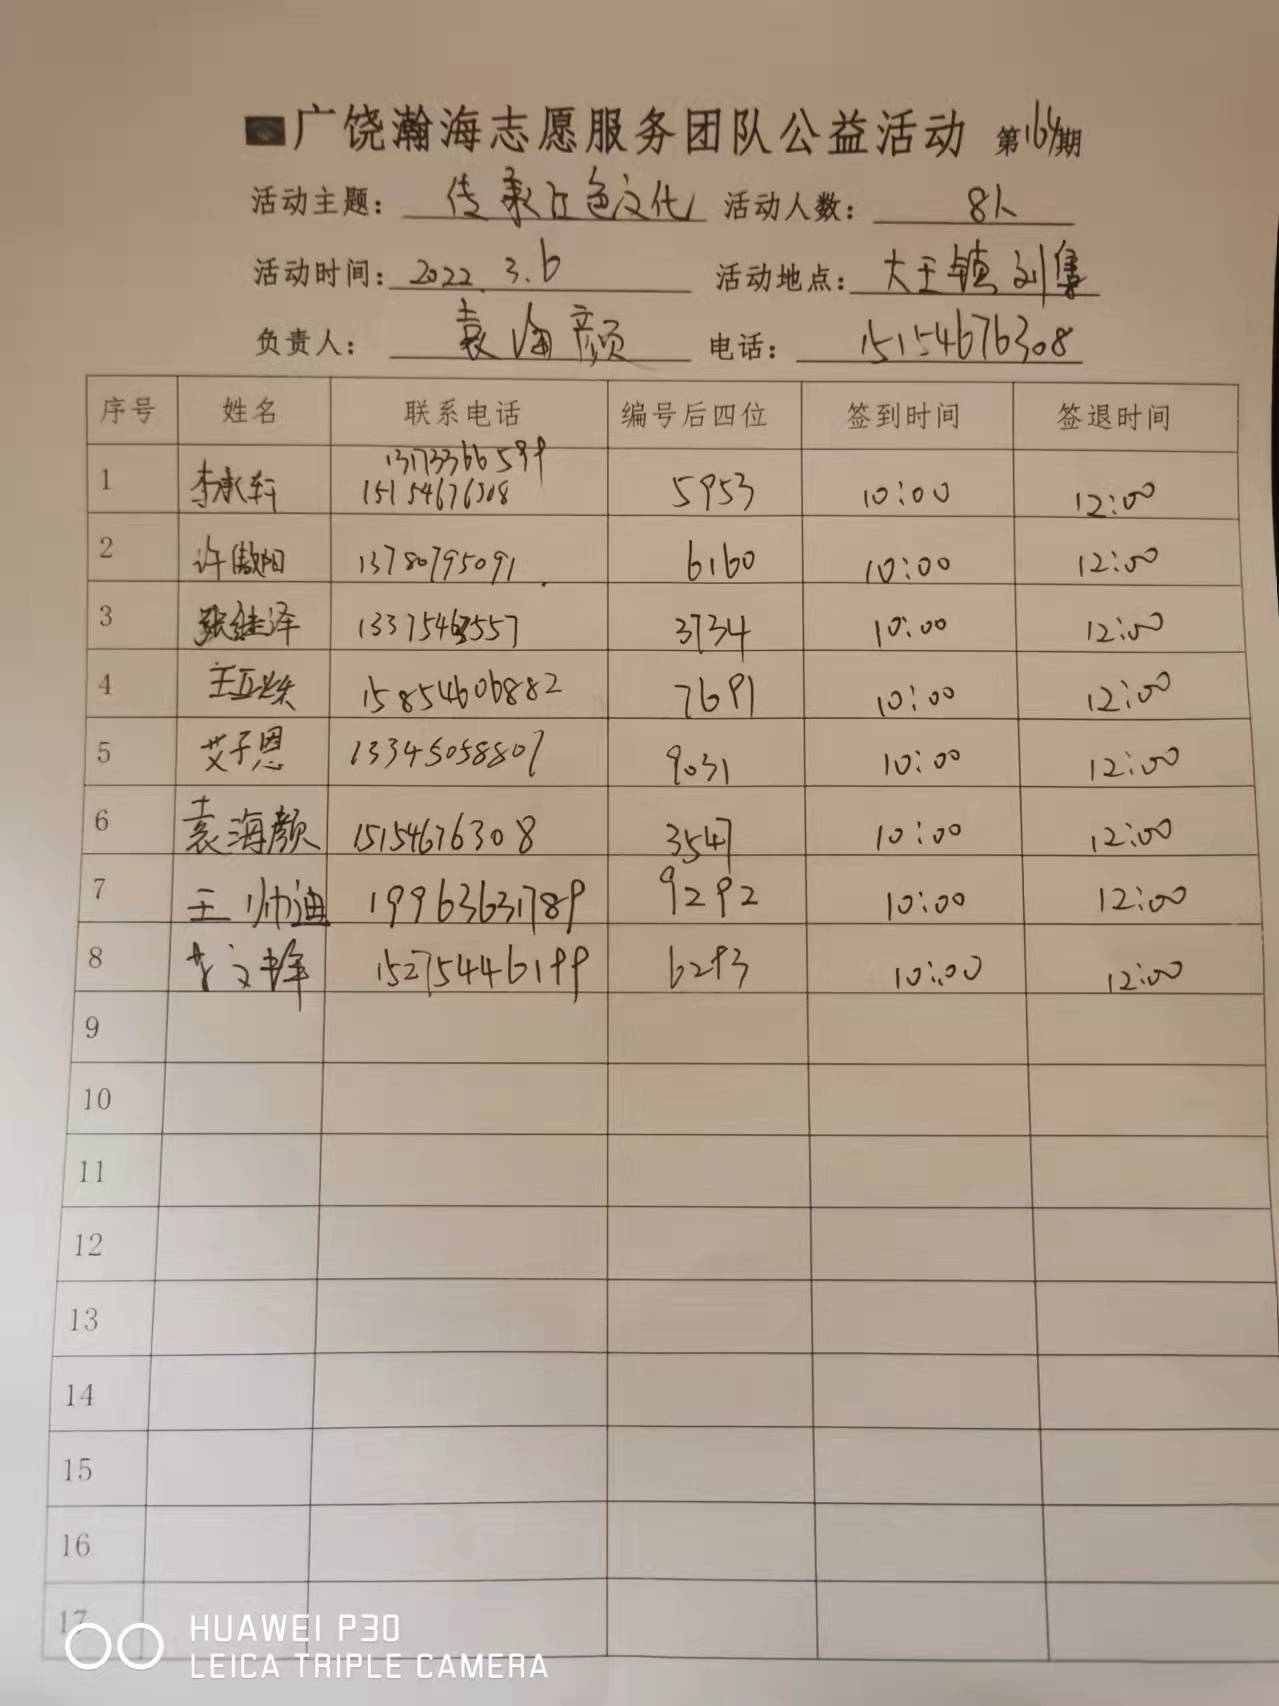 广饶瀚海志愿服务团队公益活动 第164期
活动主题： 传承红色文化 活动人数： 8人
活动时间： 2022.3.6 活动地点： 大王镇刘集
负责人： 袁海颜 电话： 15154676308
序号 姓名 联系电话 编号后四位 签到时间 签退时间
13173366599
1 李承轩 15154676308 5953 10:00 12:00
2 许傲阳 13780795091 6160 10:00 12:00
3 张继泽 13375463557 3734 10:00 12:00
4 王 15854606882 7691 10:00 12:00
5 艾子恩 13345058807 9031 10:00 12:00
6 袁海颜 15154676308 3547 10:00 12:00
7 王帅迪 19963631789 9292 10:00 12:00
8 15275446199 6293 10:00 12:00
9
10
11
12
13
14
15
16
17
HUAWEI P30
LEICA TRIPLE CAMERA